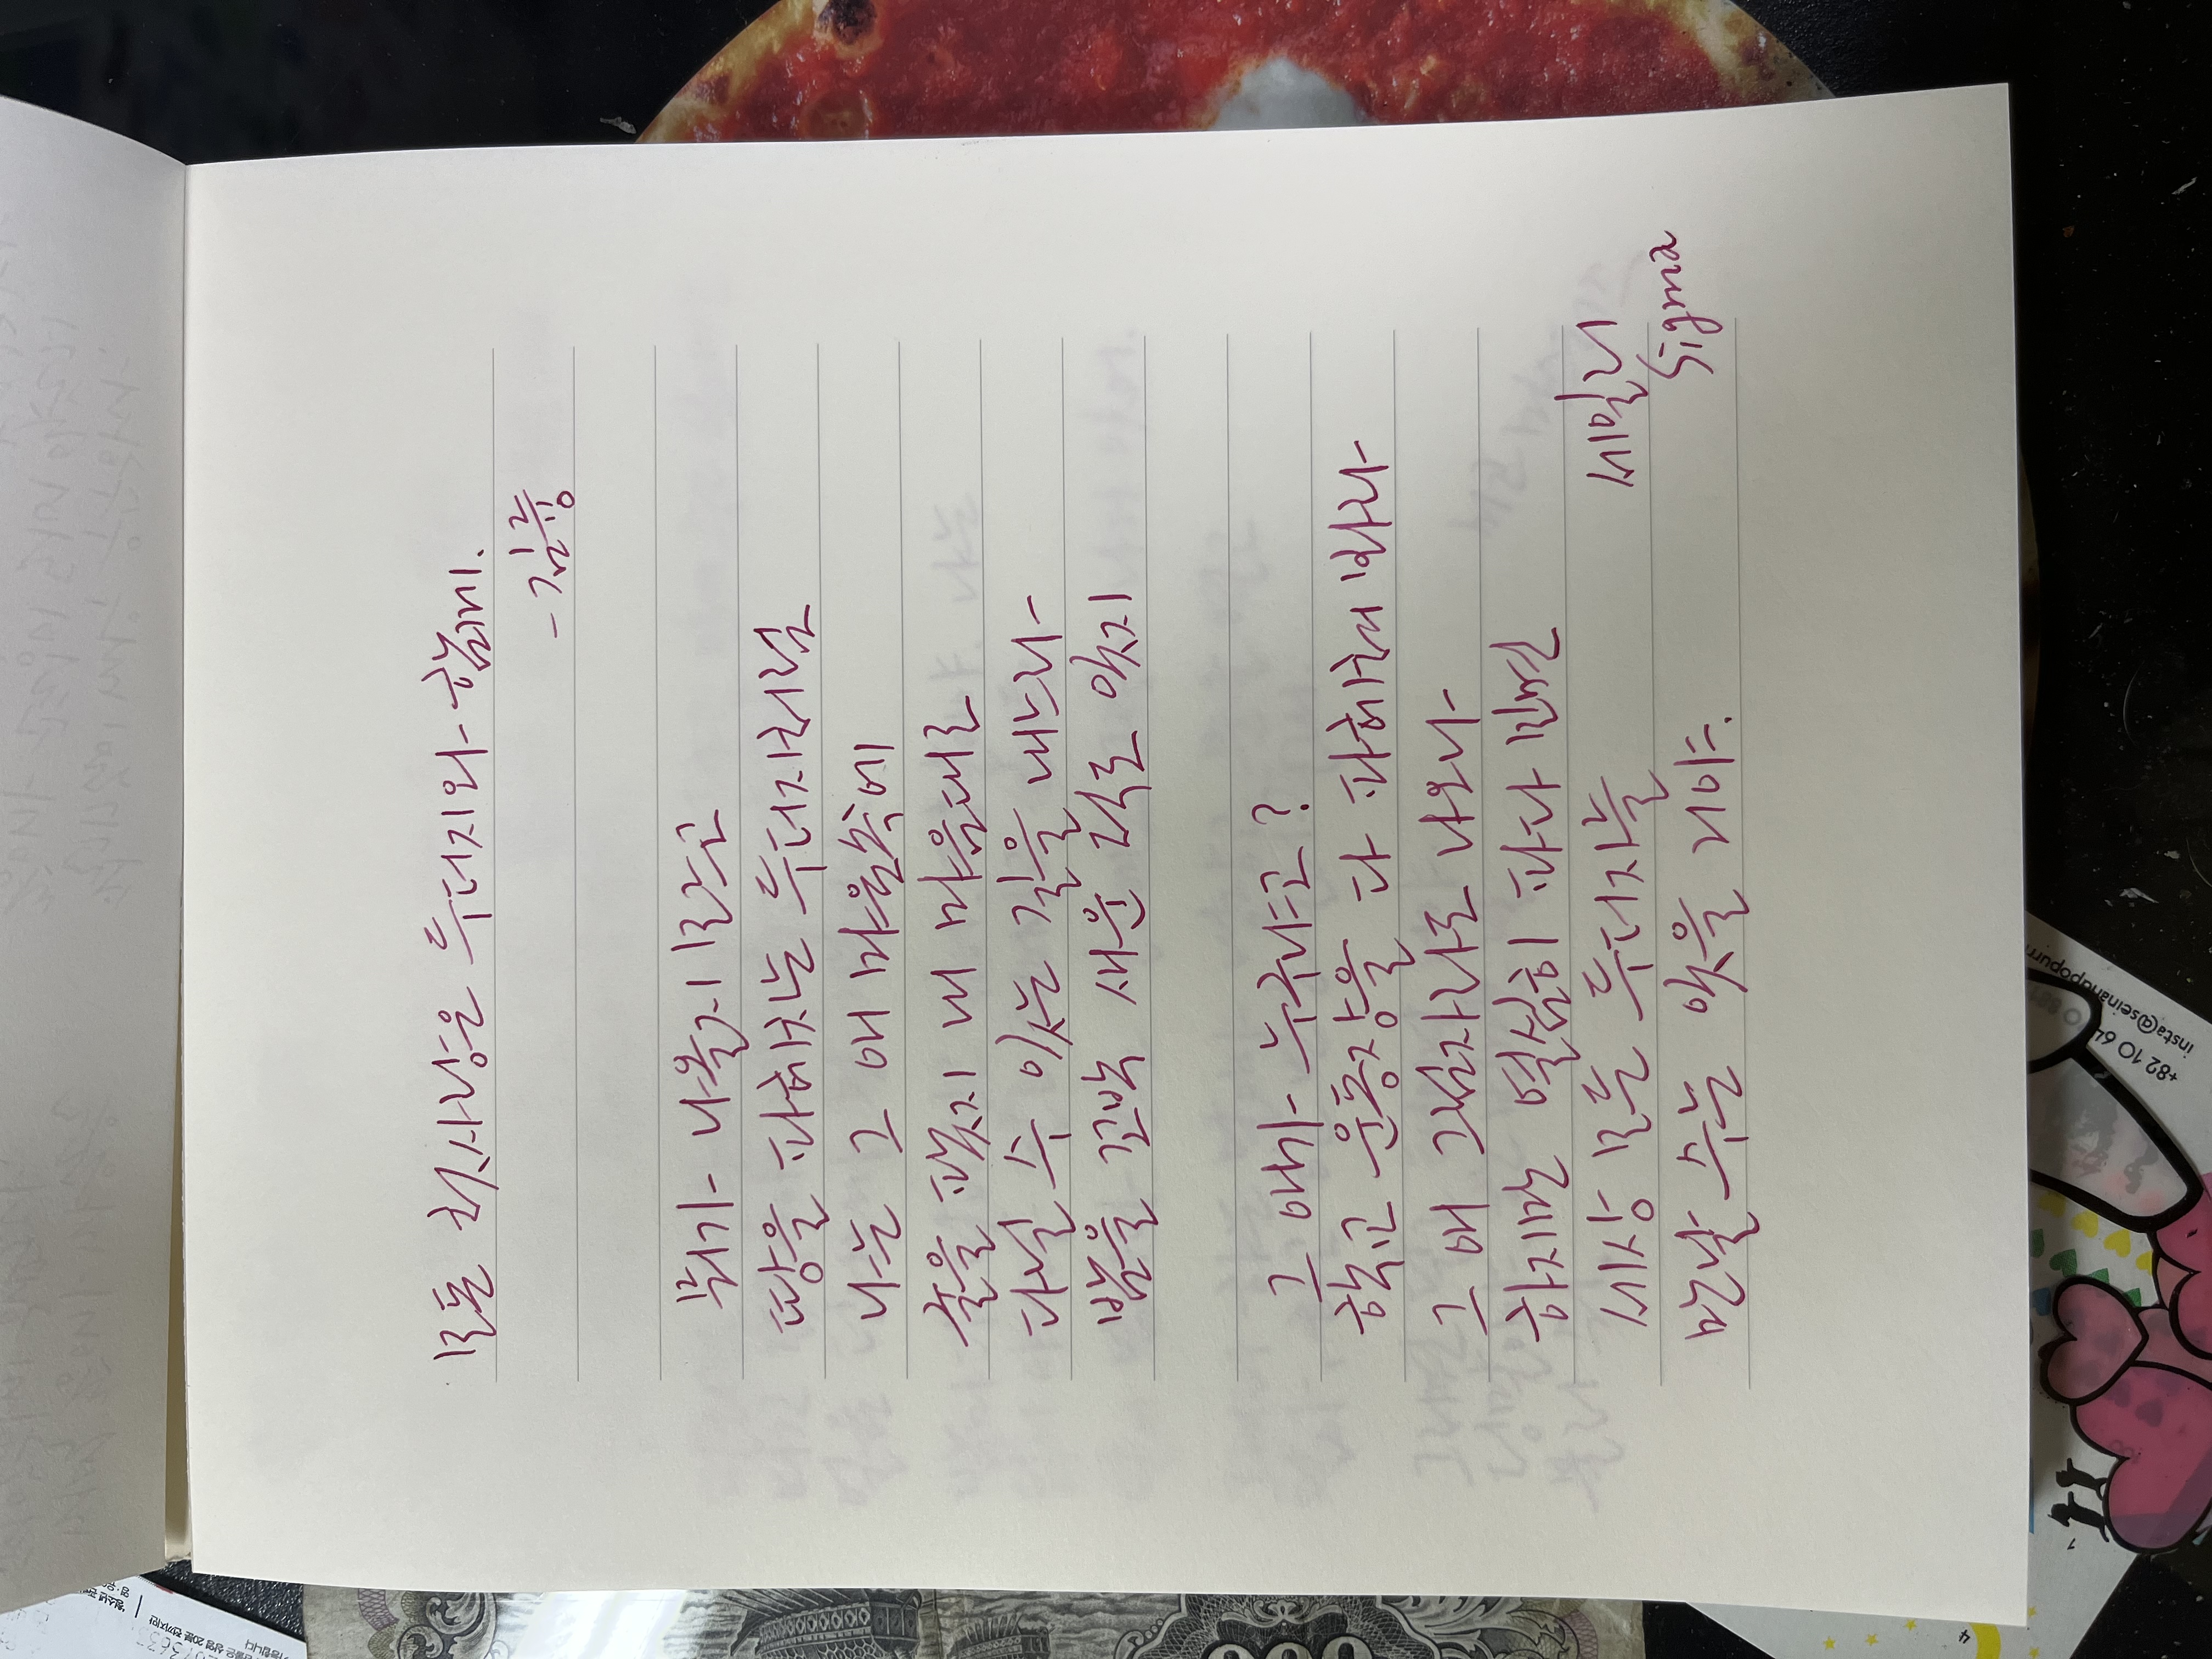 모든 첫사랑은 두더지와 함께.
- 김륭
뭐가 나올지 모르고
땅을 파헤치는 두더지처럼
나는 그 애 마음속에
굴을 팠지 내 마음대로
다닐 수 있는 길을 내느라
밤을 꼬박 새운 적도 있지
그 애가 누구냐고?
학교 운동장을 다 파헤쳐 봐라
그 애 그림자라도 나오나
하지만 열심히 파다 보면
세상 모든 두더지는
만날 수는 있을 거야.
세일러
Sigma
+82 10 64
insta@seinandpopurri